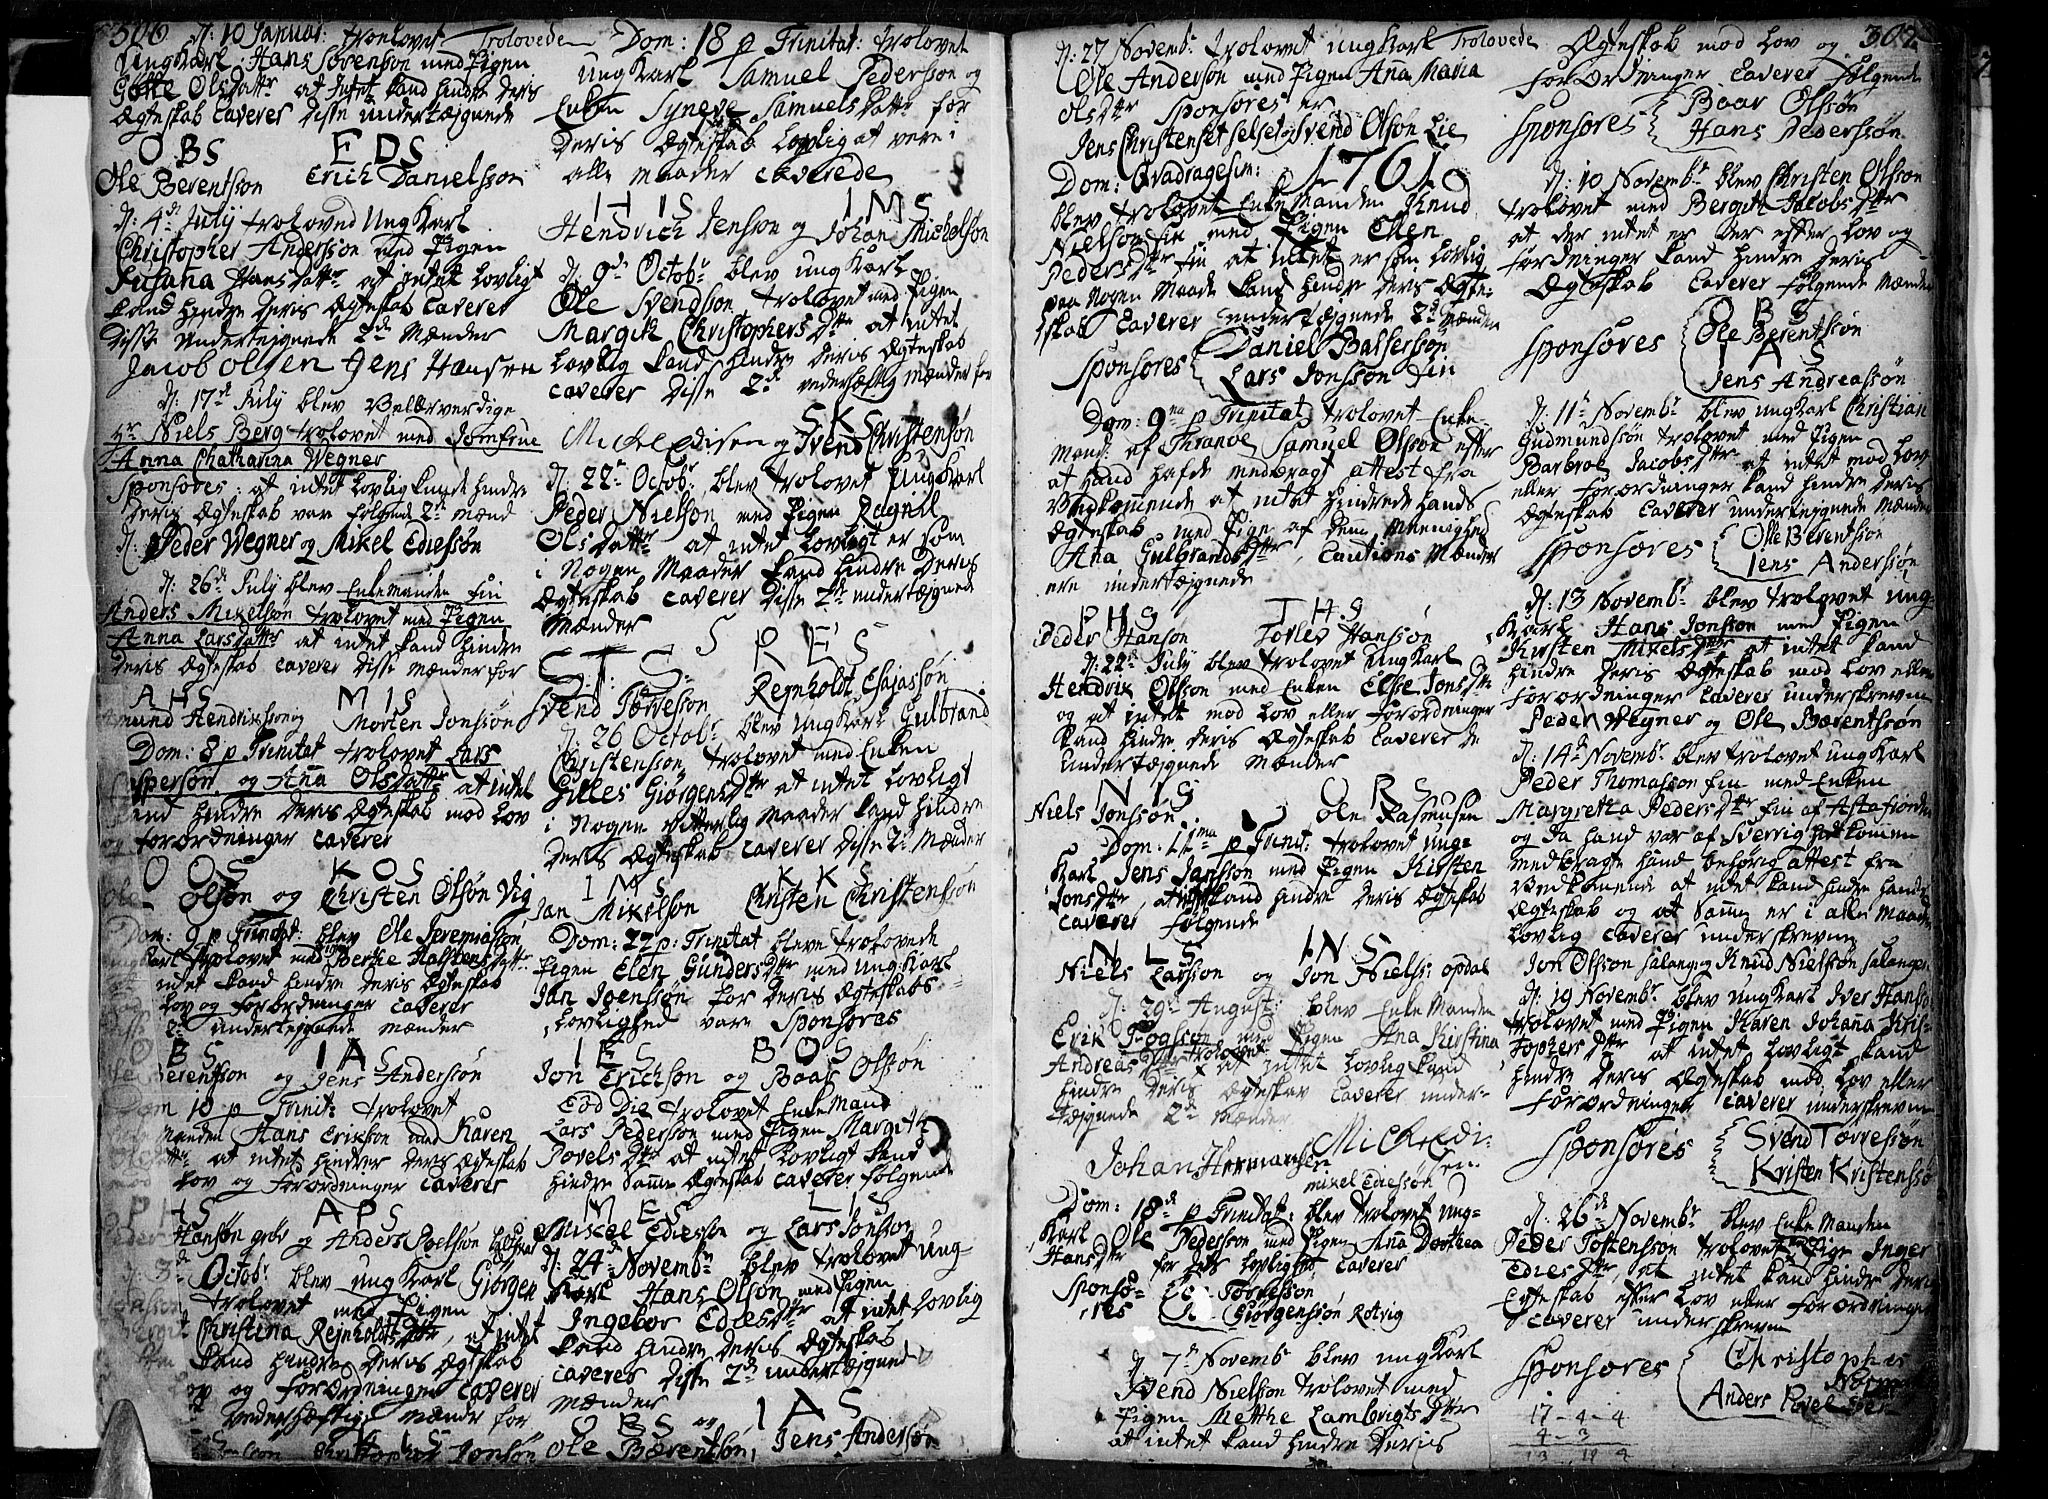 306
Trolovede
d: 10 Januar: trolovet
Ungkarl Hans Sørensøn med Pigen
Gølle Olsdattr at Intet kand hindre deris
Ægteskab Caverer disse undertejgnede
OBS EDS
Ole Berentsøn Erich Danielssøn
d: 4de Julij troloved Ung Karl
Christopher Anderssøn med Pigen
Susana Hansdattr at Intet lovligt
kand hindre deris Ægteskab Caverer
disse Undertejgnede 2de Mænder
Jacob olsen Jens Hansen
d: 17de July blev Vellærverdige
Hr Niels Berg trolovet med Jomfrue
Anna Chatharina Wegner
Sponsores: at intet lovlig kunde hindre
deris Ægteskab var følgende 2de mænd
d: Peder Wegner og Mikel Ediessøn
d: 26de July blev Enkemanden Fin
Anders Mikelsøn trolovet med Pigen
Anna Larsdattr at intet kand hindre
deris Ægteskab caverer disse Mænder for
AHS MIS
Amund Hendrikssøn og Morten Jonssøn
Dom: 8 p Trinitat trolovet Lars
Jespersøn og Aña Olsdattr at intet
kand hindre deris Ægteskab mod Lov
og forordninger caverer
OOS KOS
Ole Olsøn og Christen Olsøn Vig
Dom: 9 p Trinitat: blev Ole Jeremiassøn
ungkarl trolovet med Pigen Berthe Halstensdattr
intet kand hindre deris Ægteskab
Lov og forordninger caverer
2de undertejgnede mænder
OBS IAS
Ole Berentsøn og Jens Anderssøn
Dom 10 p Trinit: trolovet
Enkemanden Hans Eriksøn med Karen
Olsdattr at intet hindrer deris Ægteskab
mod Lov og forordninger caverer
PHS APS
Peder Hansøn grøv og Anders Poelsøn
d: 3de Octobr blev ungkarl Giørgen
trolovet med Pigen
Christina Rejnholdtsdtr, at intet
kand hindre deris Ægteskab
Lov og forordninger caverer
vederhæftige mænder for
Christopher Jonsøn
Dom: 18 p Trinitat: trolovet
ungkarl Samuel Pederssøn og
Enken Syneve Samuelsdattr for
deris Ægteskab lovlig at vere i
alle maader caverede
HIS IMS
Hendrich Jenssøn og Johan Michelsøn
d: 9de Octobr blev ungkarl
Ole Svendssøn trolovet med Pigen
Margith Christophersdtr at intet
lovlig kand hindre deris Ægteskab
caverer disse 2de vederhæftig mænder for
SKS
Mickel Edisen og Svend Christensøn
d: 22de Octobr blev trolovet Ungkarl
Peder Nielsøn med Pigen Ragnil
Olsdattr at intet lovligt er som
i Nogen Maader kand hindre deris
Ægteskab caverer disse 2de undertejgnede
Mænder
STS RES
Svend Torressøn Rejnholdt Esajassøn
d: 26 Octobr blev ungkarl Gulbrand
Christenssøn trolovet med Enken
Gilles Giørgensdtr at intet lovligt
i Nogen vitterlig Maader kand hindre
deris Ægteskab caverer disse 2de Mænder
IMS KKS
Jan Mikelsøn Christen Christensøn
Dom: 22 p: Trinitat bleve trolovede
Pigen Elen Gundersdtr med ungkarl
Jan Joenssøn for deris Ægteskabs
Lovlighed vare Sponsores
IES BOS
Jon Erichsøn og Baar Olssøn
Eod Die trolovet Enkemand
Lars Pederssøn med Pigen Margith
Povelsdtr at intet lovligt kand
hindre samme Ægteskab caverer følgende
MES LIS
Mikel Ediessøn og Lars Jonssøn
d: 24de Novembr blev trolovet ung-
karl Hans Olsøn med Pigen
Ingebor Ediesdtr at intet lovlig
kand hindre deris Ægteskab
caveres disse 2de undertejgnede
mænder
OBS og IAS
Ole Bærentsøn Jens Andersøn
307
Trolovede
d: 27 Novembr trolovet ungkarl
Ole Andersøn med Pigen Aña Maria
Olsdtr Sponsores er
Jens Christensøt selset og Svend Olsøn Lie
1761
Dom: Qvadragesim:
blev trolovet Enkemanden Knud
Nielsøn Fin med Pigen Ellen
Pedersdtr Fin at intet er som lovlig
paa Nogen Maade kand hindre deris Ægte-
skab Caverer undertejgnede 2de Mænder
Sponsores Daniel Balserssøn
Lars Jonssøn Fin
Dom: 9na p Trinitat trolovet Enke-
Mand: af Thranøe Samuel Olssøn efter
at hand hafde medbragt attest fra
Vedkommende at intet hindrede hands
Ægteskab med Pige af denne Menighed
Aña Gulbrandsdtr, Cautions Mænder
ere undertejgnede
PHS THS
Peder Hansøn Torlev Hanssøn
d: 22de July blev trolovet Ungkarl
Hendrik Olssøn med Enken Else Jonsdtr
og at intet mod Lov eller forordninger
kand hindre deris Ægteskab caverer de
Undertejgnede Mænder
NIS ORS
Niels Jonssøn Ole Rasmusen
Dom: 11ma p Trinit: trolovet Ung-
Karl Jens Janssøn med Pigen Kirsten
Jonsdtr, at intet kand hindre deris Ægteskab
caverer følgende
NLS INS
Niels Larssøn og Jon Nielss: opdal
d: 29de August: blev Enke Manden
Erik med Pigen Ana Kirstina
Andreasdtr trolovet at intet lovlig kand
hindre deris Ægteskav caverer under-
tejgnede 2de mænder
Johan Hermansen Mickel Edi-
sen
mikel Ediessøn
Dom: 18de p Trinitat: blev trolovet Ung-
karl Ole Pederssøn med Pigen Ana Dorthea
Hansdtr for dets lovlighed caverer
Sponso-
res Torressøn
Giørgenssøn Rotvig
d 7de Novembr blev ungkarl
Svend Nielssøn trolovet med
Pigen Metthe Lambrigtsdtr
at intet kand hindre deris
Ægteskab mod Lov og
forordninger Caverer følgende
Sponsores Baar Olssøn
Hans Pederssøn
d: 10 Novembr blev Christen Olssøn
trolovet med Bergith Jacobsdtr
at der intet er der efter Lov og
fordninger kand hindre deris
Ægteskab Caverer følgende Mænder
OBS
Sponsores Ole Berentssøn
IAS
Jens Andreassøn
d: 11te Novembr blev ungkarl Christian
Gudmundssøn trolovet med Pigen
Barbroe Jacobsdtr at intet mod Lov
eller forordninger kand hindre deris
Ægteskab caverer undertejgnede Mænder
Sponsores Olle Berentssøn
Jens Anderssøn
d: 13 Novembr blev trolovet ung-
Karl Hans Jonssøn med Pigen
Kirsten Mikelsdtr at intet kand
hindre deris Ægteskab mod lov eller
forordninger Caverer underskreven
Peder Wegner og Ole Bærentssøn
d: 14de Novembr blev trolovet ungkarl
Peder Thomassøn Fin med Enken
Margretha Pedersdtr Fin af Astafiorden
og da hand var af Sverrig hidkommen
medbragte hand behørig attest fra
Vedkomende at intet kand hindre hands
Ægteskab og at samme er i alle Maader
lovlig caverer underskreven
Jon Olssøn Salang og Knud Nielssøn Salangen
d: 19 Novembr blev ungkarl Iver Hansøn
trolovet med Pigen Karen Johaña Kris-
tophersdtr at intet lovligt kand
hindre deris Ægteskab mod Lov eller
forordninger caverer underskreven
Sponsores Svend Torressøn
Kristen Kristenssøn
d: 26de Novembr blev Enke Manden
Peder Tostenssøn trolovet med Pige Inger
Ediesdtr, at intet kand hindre deris
Egteskab efter Lov eller forordninger
caverer underskreven
Sponsores Christopher
Anders Povelssøn
17-4-4
4-3
13 19 4